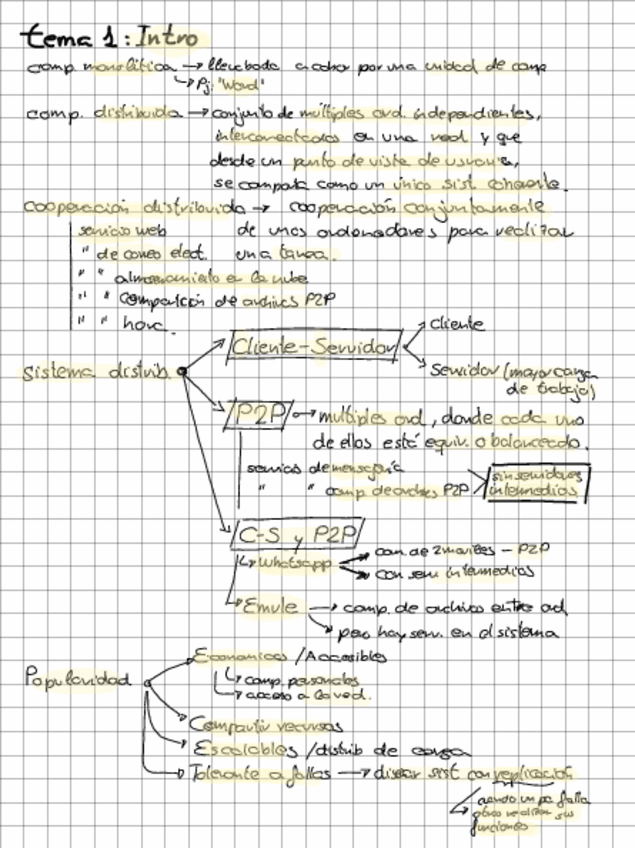 tema 1: Intro
comp. monolítica → llevada a cabo por una unidad de comp
↳ Pj: "Word"
comp. distribuida → conjunto de múltiples ord. independientes,
interconectados en una red y que
desde un punto de vista de usuario,
se comporta como un único sist coherente.
cooperación distribuida → cooperación conjuntamente
servicio web de unos ordenadores para realizar
" de correo elect. una tarea.
" " almacenamiento en la nube
" " compartición de archivos P2P
" " hora.
Cliente-Servidor
cliente
Servidor (mayor carga
de trabajo)
sistema distrib.
P2P → multiples ord, donde cada uno
de ellos está equiv. o balanceado.
servicios de mensajería
" " comp. de archivos P2P
sin servidores
intermedios
C-S y P2P
↳ Whatsapp
con. de 2 moviles - P2P
con serv intermedios
Emule → comp. de archivos entre ord
pero hay serv. en el sistema
Popularidad
Economicos / Accesibles
↳ comp. personales
→ acceso a la red.
Compartir recursos
Escalables / distrib de carga
Tolerante a fallas → diseñar sist con replicación
cuando un pc falla
otros realizan sus
funciones